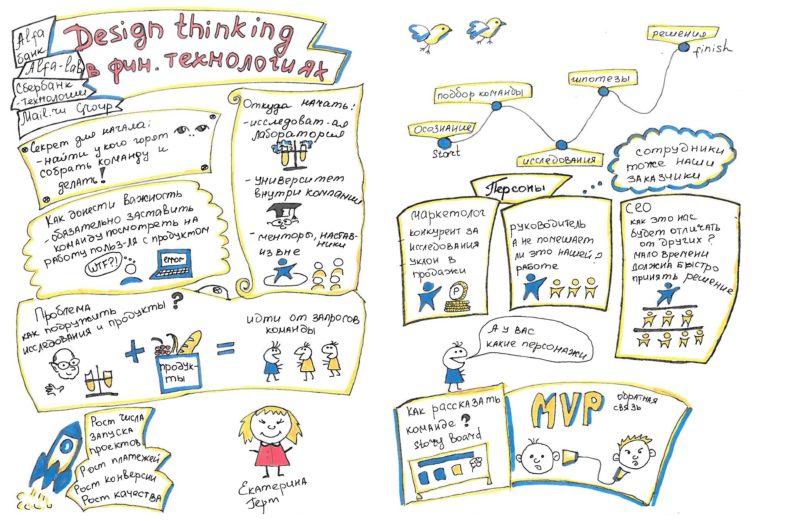 Design thinking
в фин. технологиях
Alfa
банк
Alfa-lab
Сбербанк
-технологии
Mail.ru Group
Секрет для начала:
- найти у кого горят
собрать команду и
делать!
Откуда начать:
- исследоват-ая
лаборатория
- университет
внутри компании
- менторы, настав-
ники
из вне
Как донести важность
- обязательно заставить
команду посмотреть на
работу польз-ля с продуктом
WTF?!
error
Проблема
как подружить
исследования и продукты?
+
продук-
ты
=
идти от запросов
команды
Рост числа
запуска
проектов
Рост платежей
Рост конверсии
Рост качества
Екатерина
Герт
осознание
start
подбор команды
исследования
гипотезы
решения
finish
сотрудники
тоже наши
заказчики
Персоны
маркетолог
конкурент за
исследования
уклон в
продажи
руководитель
а не помешает
ли это нашей?
работе
CEO
как это нас
будет отличать
от других?
мало времени
должна быстро
принять решение
А у вас
какие персонажи
как рассказать
команде?
story board
MVP
обратная
связь